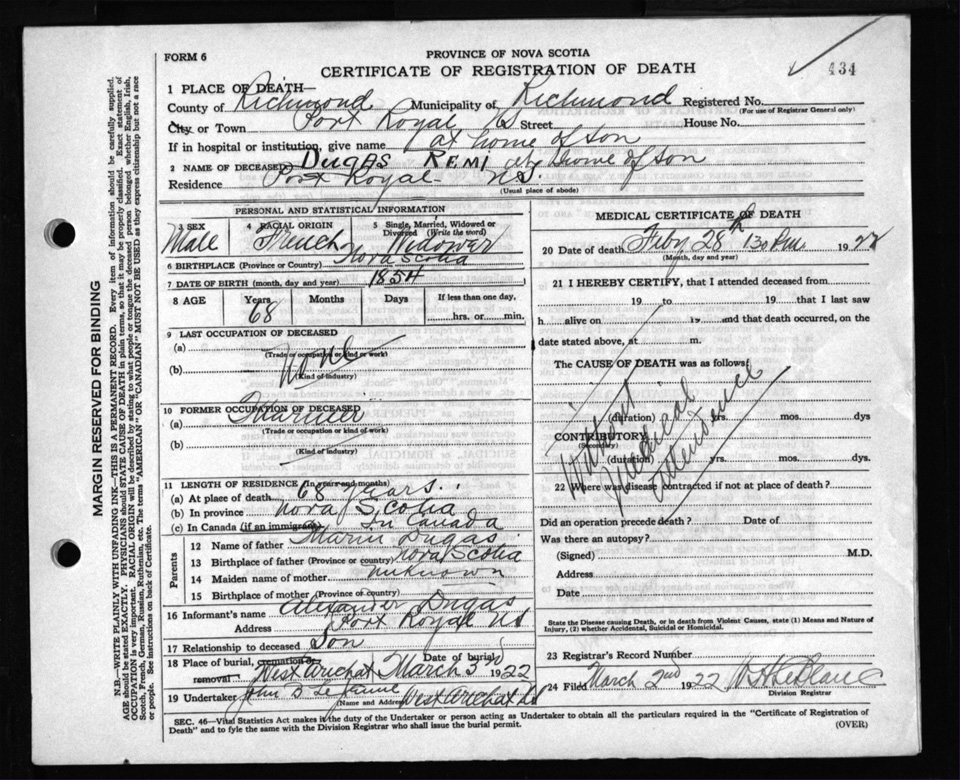 434
FORM 6
PROVINCE OF NOVA SCOTIA
CERTIFICATE OF REGISTRATION OF DEATH
1 PLACE OF DEATH—
County of Richmond Municipality of Richmond Registered No.
(For use of Registrar General only)
City or Town Port Royal NS Street House No.
If in hospital or institution, give name at home of son
2 NAME OF DECEASED DUGAS REMI at home of son
Residence Port Royal NS.
(Usual place of abode)
PERSONAL AND STATISTICAL INFORMATION
3 SEX 4 RACIAL ORIGIN 5 Single, Married, Widowed or Divorced (Write the word)
Male French Widower
6 BIRTHPLACE (Province or Country) Nova Scotia
7 DATE OF BIRTH (month, day and year) 1854
8 AGE Years Months Days If less than one day,
68 hrs. or min.
9 LAST OCCUPATION OF DECEASED
(a)
(Trade or occupation or kind or work)
(b) None
(Kind of industry)
10 FORMER OCCUPATION OF DECEASED
(a)
(Trade or occupation or kind of work)
(b)
(Kind of industry)
11 LENGTH OF RESIDENCE (in years and months)
(a) At place of death 68 years.
(b) In province Nova Scotia
(c) In Canada (if an immigrant) In Canada
Parents
12 Name of father Dugas
13 Birthplace of father (Province or country) Nova Scotia
14 Maiden name of mother unknown
15 Birthplace of mother (Province or country)
16 Informant's name Alexander Dugas
Address Port Royal NS
17 Relationship to deceased Son
18 Place of burial, cremation or removal Date of burial
West Arichat March 3rd 1922
19 Undertaker John B LeJeune West Arichat NS
(Name and Address)
MEDICAL CERTIFICATE OF DEATH
20 Date of death Feby 28th 1 30 Pm 1922
(Month, day and year)
21 I HEREBY CERTIFY, that I attended deceased from
19 to 19 that I last saw
h alive on 19 and that death occurred, on
date stated above, at m.
The CAUSE OF DEATH was as follows:
Without
medical
attendence
(duration) yrs. mos. dys
CONTRIBUTORY
(Secondary)
(duration) yrs. mos. dys
22 Where was disease contracted if not at place of death?
Did an operation precede death? Date of
Was there an autopsy?
(Signed) M.D.
Address
Date
State the Disease causing Death, or in death from Violent Causes, state (1) Means and Nature of
Injury, (2) whether Accidental, Suicidal or Homicidal.
23 Registrar's Record Number
24 Filed March 2nd 1922
Division Registrar
SEC. 46—Vital Statistics Act makes it the duty of the Undertaker or person acting as Undertaker to obtain all the particulars required in the "Certificate of Registration of
Death" and to fyle the same with the Division Registrar who shall issue the burial permit.
(OVER)
MARGIN RESERVED FOR BINDING
N.B.—WRITE PLAINLY WITH UNFADING INK—THIS IS A PERMANENT RECORD. Every item of information should be carefully supplied.
AGE should be stated EXACTLY. PHYSICIANS should STATE CAUSE OF DEATH in plain terms, so that it may be properly classified. Exact statement of
OCCUPATION is very important. RACIAL ORIGIN will be described by stating to what people or tongue the deceased person belonged whether English, Irish,
Scotch, French, German, Russian, Ruthenian, etc. The terms "AMERICAN" OR "CANADIAN" MUST NOT BE USED as they express citizenship but not a race
or people. See instructions on back of Certificate.